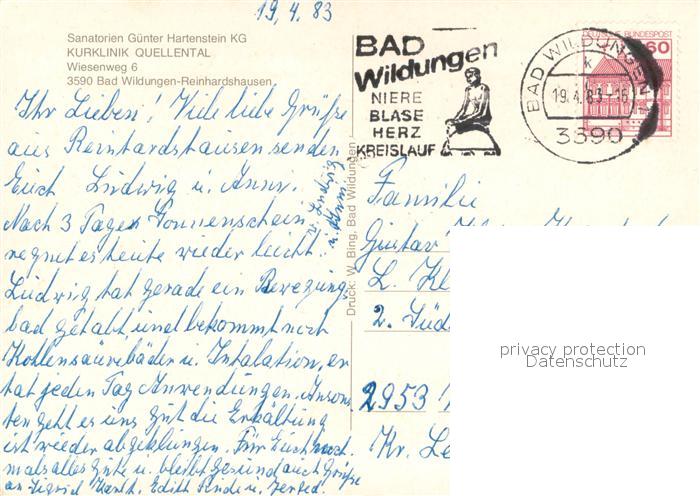 19.4.83
Sanatorien Günter Hartenstein KG
KURKLINIK QUELLENTAL
Wiesenweg 6
3590 Bad Wildungen-Reinhardshausen
Ihr Lieben! Viele liebe Grüße
aus Reinhardshausen senden
Euch Ludwig u. Anni.
Nach 3 Tagen Sonnenschein
regnet es heute wieder leicht.
Ludwig hat gerade ein Bewegungs
bad gehabt und bekommt noch
Kohlensäurebäder u. Inhalation, er
hat jeden Tag Anwendungen. Anson
ten geht es uns gut die Erkältung
ist wieder abgeklungen. Für Euch noch
mals alles Gute u. bleibt gesund auch Grüße
an Sigrid Edith u.
Ludwig
u. Anni
Druck: W. Bing, Bad Wildungen
BAD
Wildungen
NIERE
BLASE
HERZ
KREISLAUF
BAD WILDUNGEN
19.4.83-16
3590
DEUTSCHE BUNDESPOST
60
Familie
Gustav
L. Kl
2. Süd
2953
Kr. Le
privacy protection
Datenschutz